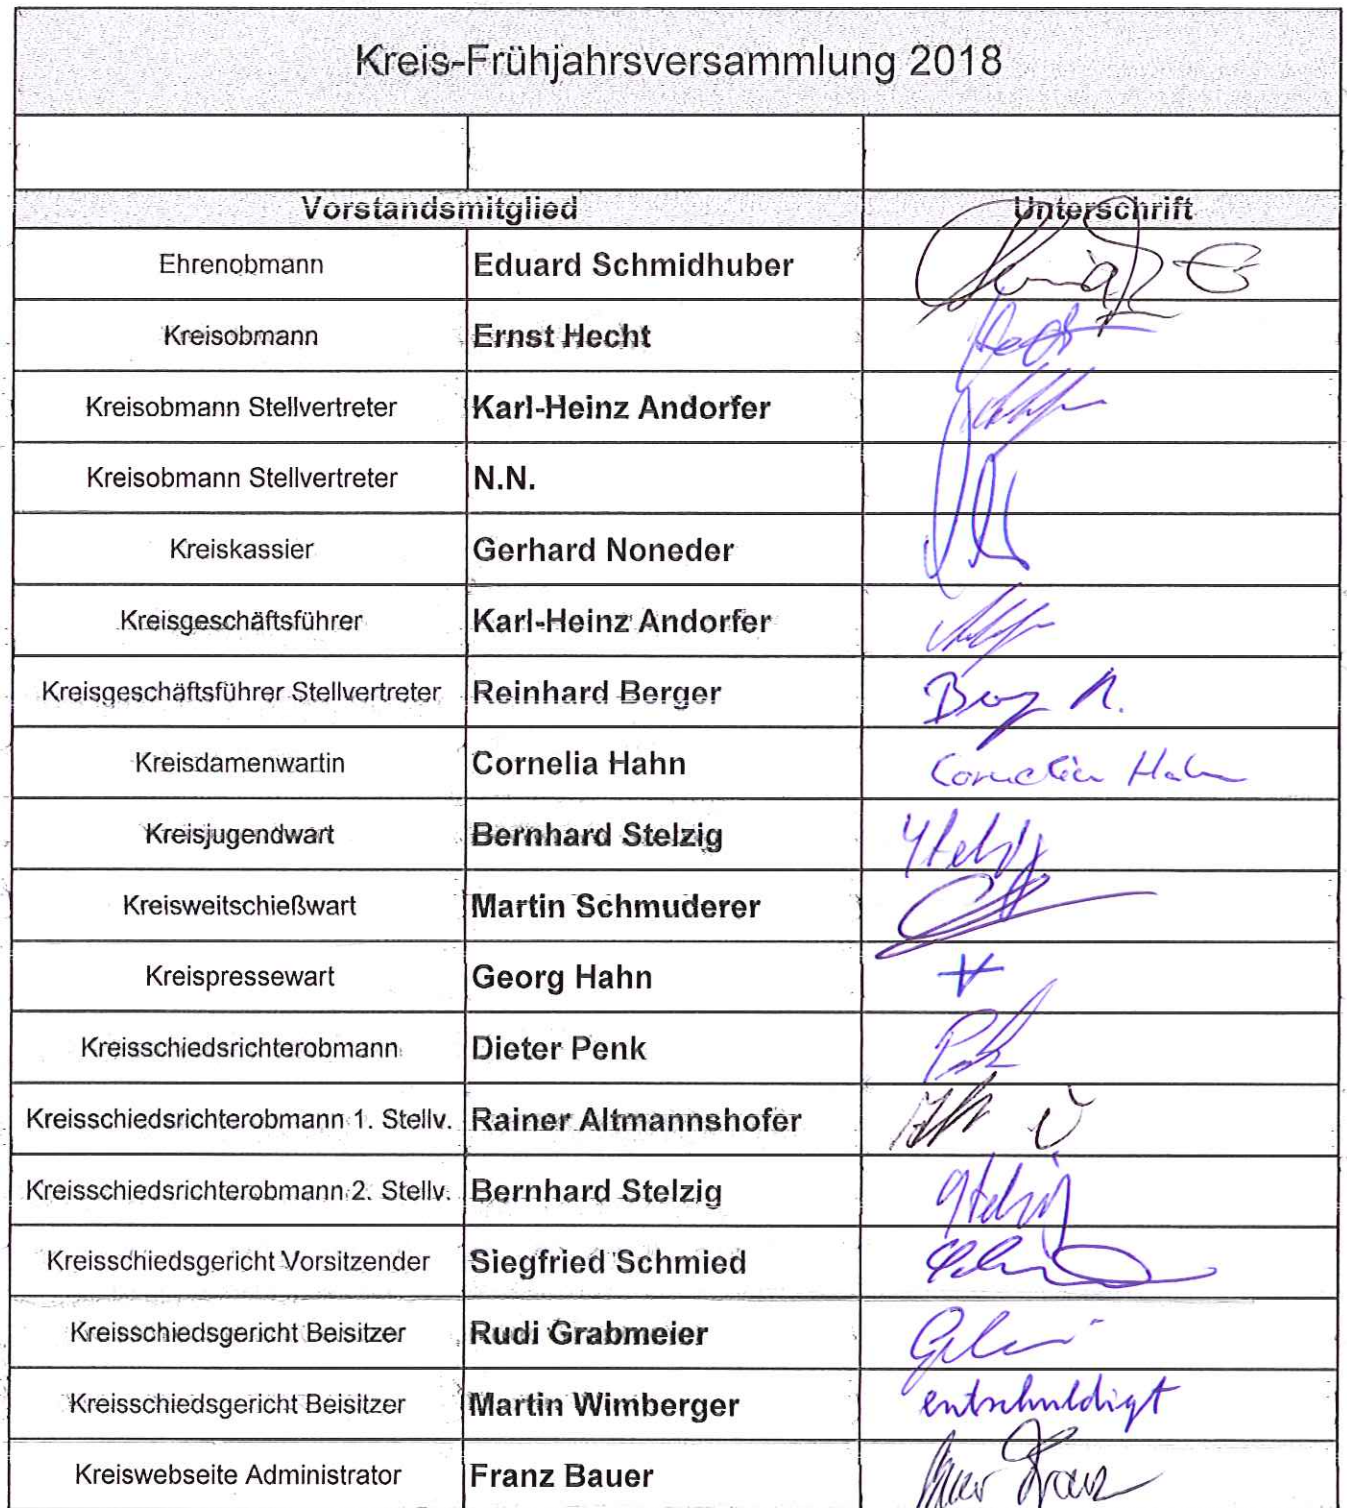 Kreis-Frühjahrsversammlung 2018
Vorstandsmitglied Unterschrift
Ehrenobmann Eduard Schmidhuber
Kreisobmann Ernst Hecht Hecht
Kreisobmann Stellvertreter Karl-Heinz Andorfer
Kreisobmann Stellvertreter N.N.
Kreiskassier Gerhard Noneder
Kreisgeschäftsführer Karl-Heinz Andorfer
Kreisgeschäftsführer Stellvertreter Reinhard Berger Berger R.
Kreisdamenwartin Cornelia Hahn Cornelia Hahn
Kreisjugendwart Bernhard Stelzig Stelzig
Kreisweitschießwart Martin Schmuderer
Kreispressewart Georg Hahn
Kreisschiedsrichterobmann Dieter Penk
Kreisschiedsrichterobmann 1. Stellv. Rainer Altmannshofer
Kreisschiedsrichterobmann 2. Stellv. Bernhard Stelzig Stelzig
Kreisschiedsgericht Vorsitzender Siegfried Schmied
Kreisschiedsgericht Beisitzer Rudi Grabmeier
Kreisschiedsgericht Beisitzer Martin Wimberger entschuldigt
Kreiswebseite Administrator Franz Bauer Bauer Franz